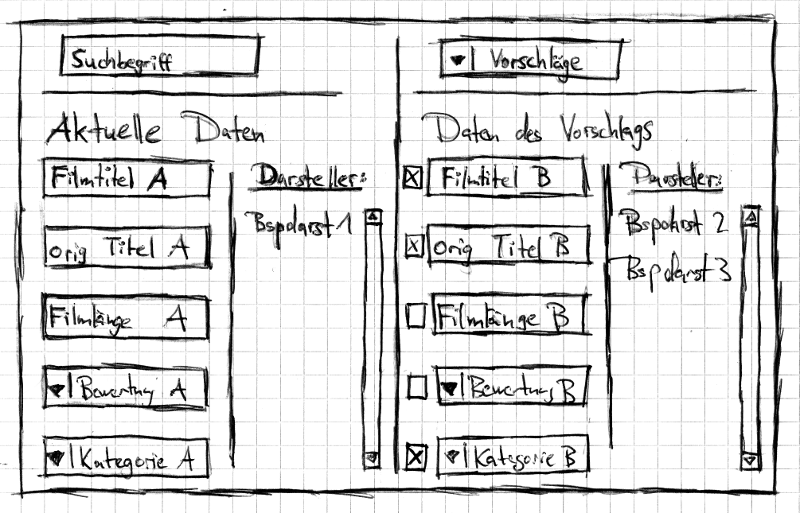 Suchbegriff
Vorschläge
Aktuelle Daten
Filmtitel A
orig Titel A
Filmlänge A
Bewertung A
Kategorie A
Darsteller:
Bspdarst 1
Daten des Vorschlags
Filmtitel B
orig Titel B
Filmlänge B
Bewertung B
Kategorie B
Darsteller:
Bspdarst 2
Bspdarst 3